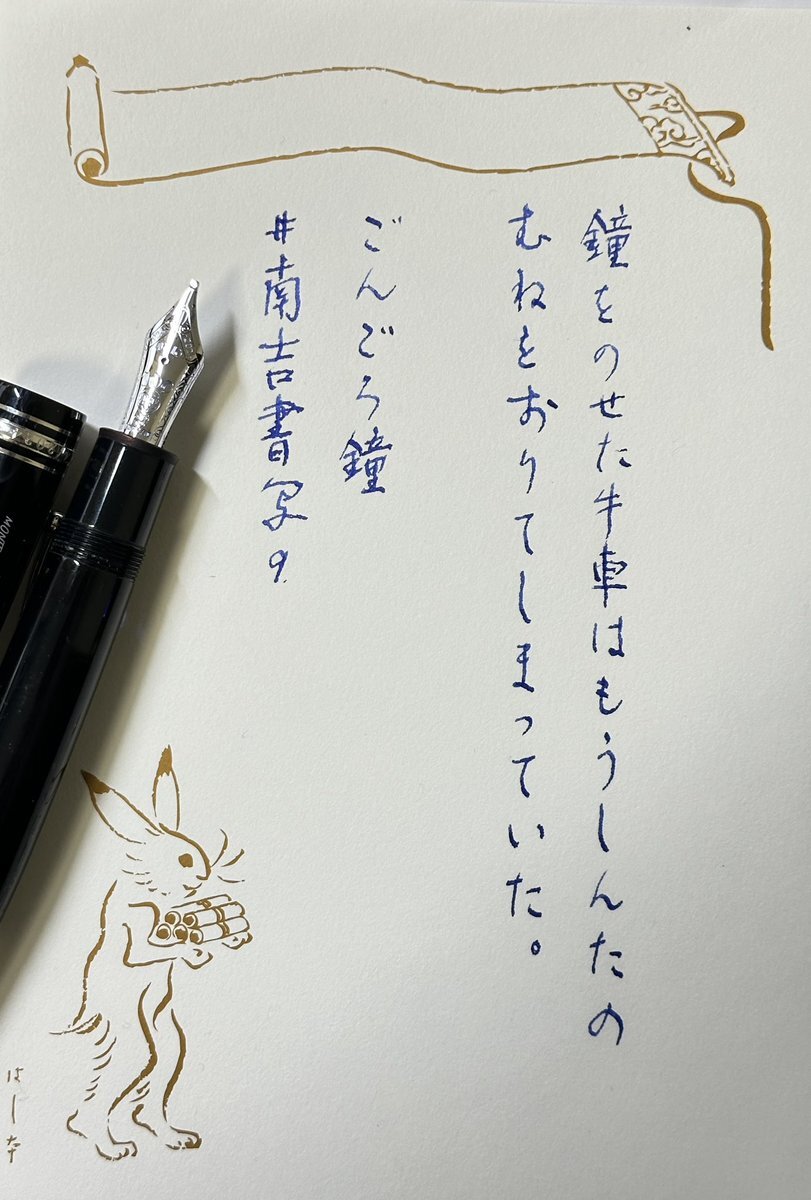 鐘をのせた牛車はもうしんたの
むねをおりてしまっていた。
ごんごろ鐘
#南吉書写9